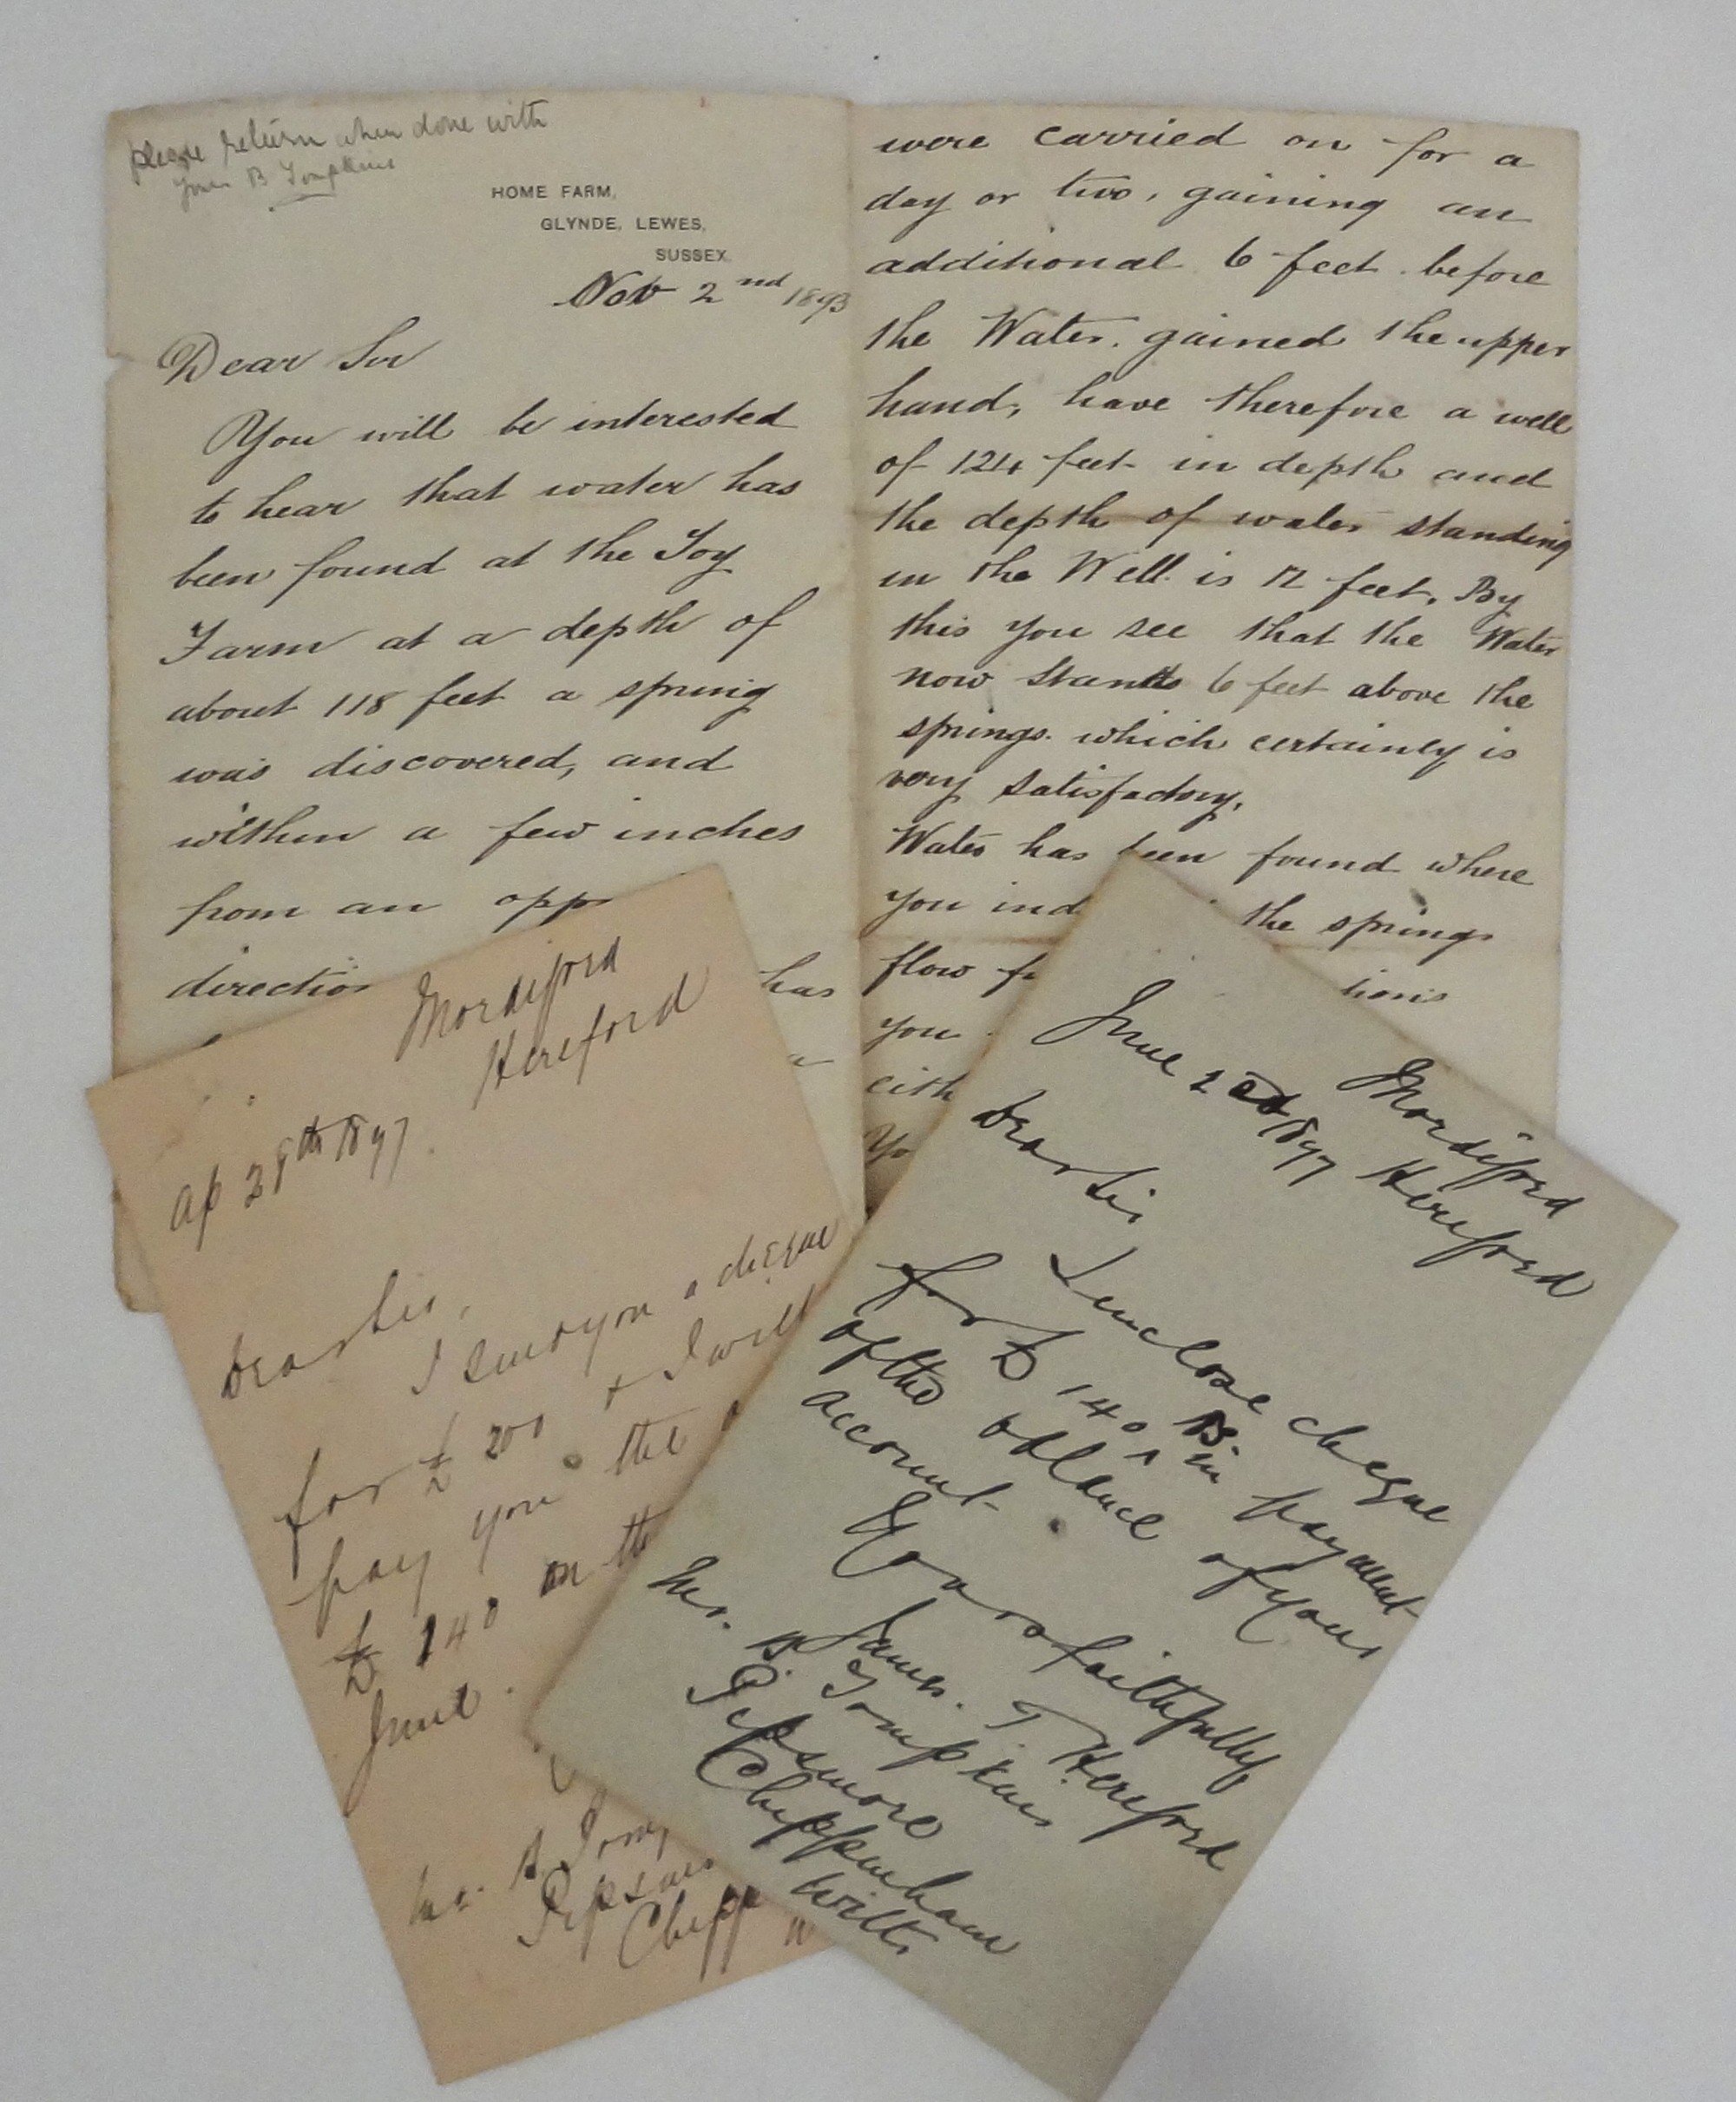 please return when done with
yours B Tompkins
HOME FARM,
GLYNDE, LEWES,
SUSSEX.
Nov 2nd 1893
Dear Sir
You will be interested
to hear that water has
been found at the Toy
Farm at a depth of
about 118 feet a spring
was discovered, and
within a few inches
from an opp
direction has
a
were carried on for a
day or two, gaining an
additional 6 feet before
the Water. gained the upper
hand, have therefore a well
of 124 feet in depth and
the depth of water standing
in the Well is 12 feet. By
this you see that the Water
now stands 6 feet above the
springs. which certainly is
very satisfactory.
Water has been found where
you ind the springs
flow f tions
you
eith
Yo
Mordiford
Hereford
Ap 28th 1897
Dear Sir,
I send you a cheque
for £200 & I will
pay you the
£140 on the
June.
Mr. B. Tomp
Pipsmo
Chipp
W
Mordiford
Hereford
June 2nd 1897
Dear Sir
I enclose cheque
for £140 in payment
of the balance of your
account.
Yours faithfully
James T Hereford
Mr. B Tompkins
Pipsmore
Chippenham
Wilts